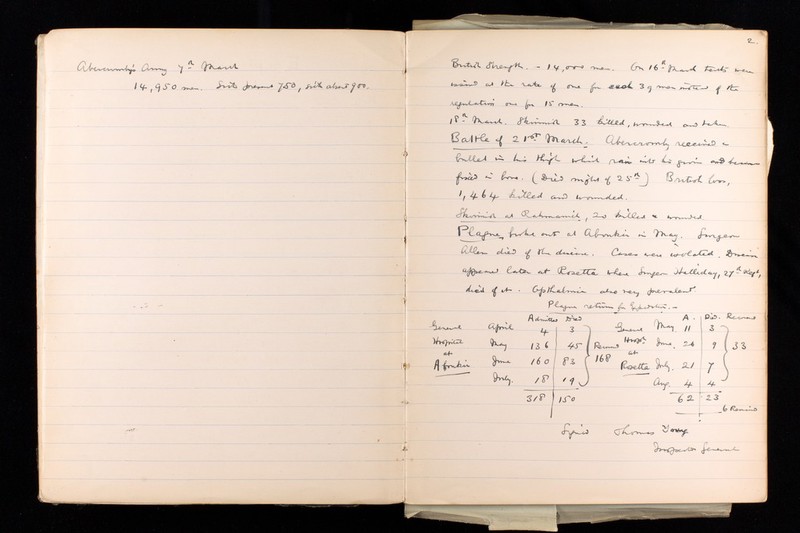 Abercromby's Army 7th March
14,950 men. Sick present 750, sick absent 900.
2
British Strength. - 14,000 men. On 16th March tents were
issued at the rate of one for each 39 men instead of the
regulation one for 15 men.
18th March. Skirmish 33 killed, wounded and taken
Battle of 21st March. Abercromby received a
bullet in his thigh which ran into his groin and became
fixed in bone. (Died night of 25th) British loss,
1,464 killed and wounded.
Skirmish at Rahmanieh, 20 killed & wounded
Plague, broke out at Aboukir in May. Surgeon
Allen died of the disease. Cases were isolated. Disease
appeared later at Rosetta where Surgeon Halliday, 27th Regt,
died of it. Ophthalmia also very prevalent
Plague returns for Expedition. -
Admitted Died A. Died. Recovered
General April 4 3 General May 11 3
Hospital May 136 45 Recovered Hosp. June. 26 9 33
at June 160 83 168 at
Aboukir July. 18 19 Rosetta July. 21 7
Aug. 4 4
318 150 62 23
6 Remained
Signed Thomas Young
Inspector General